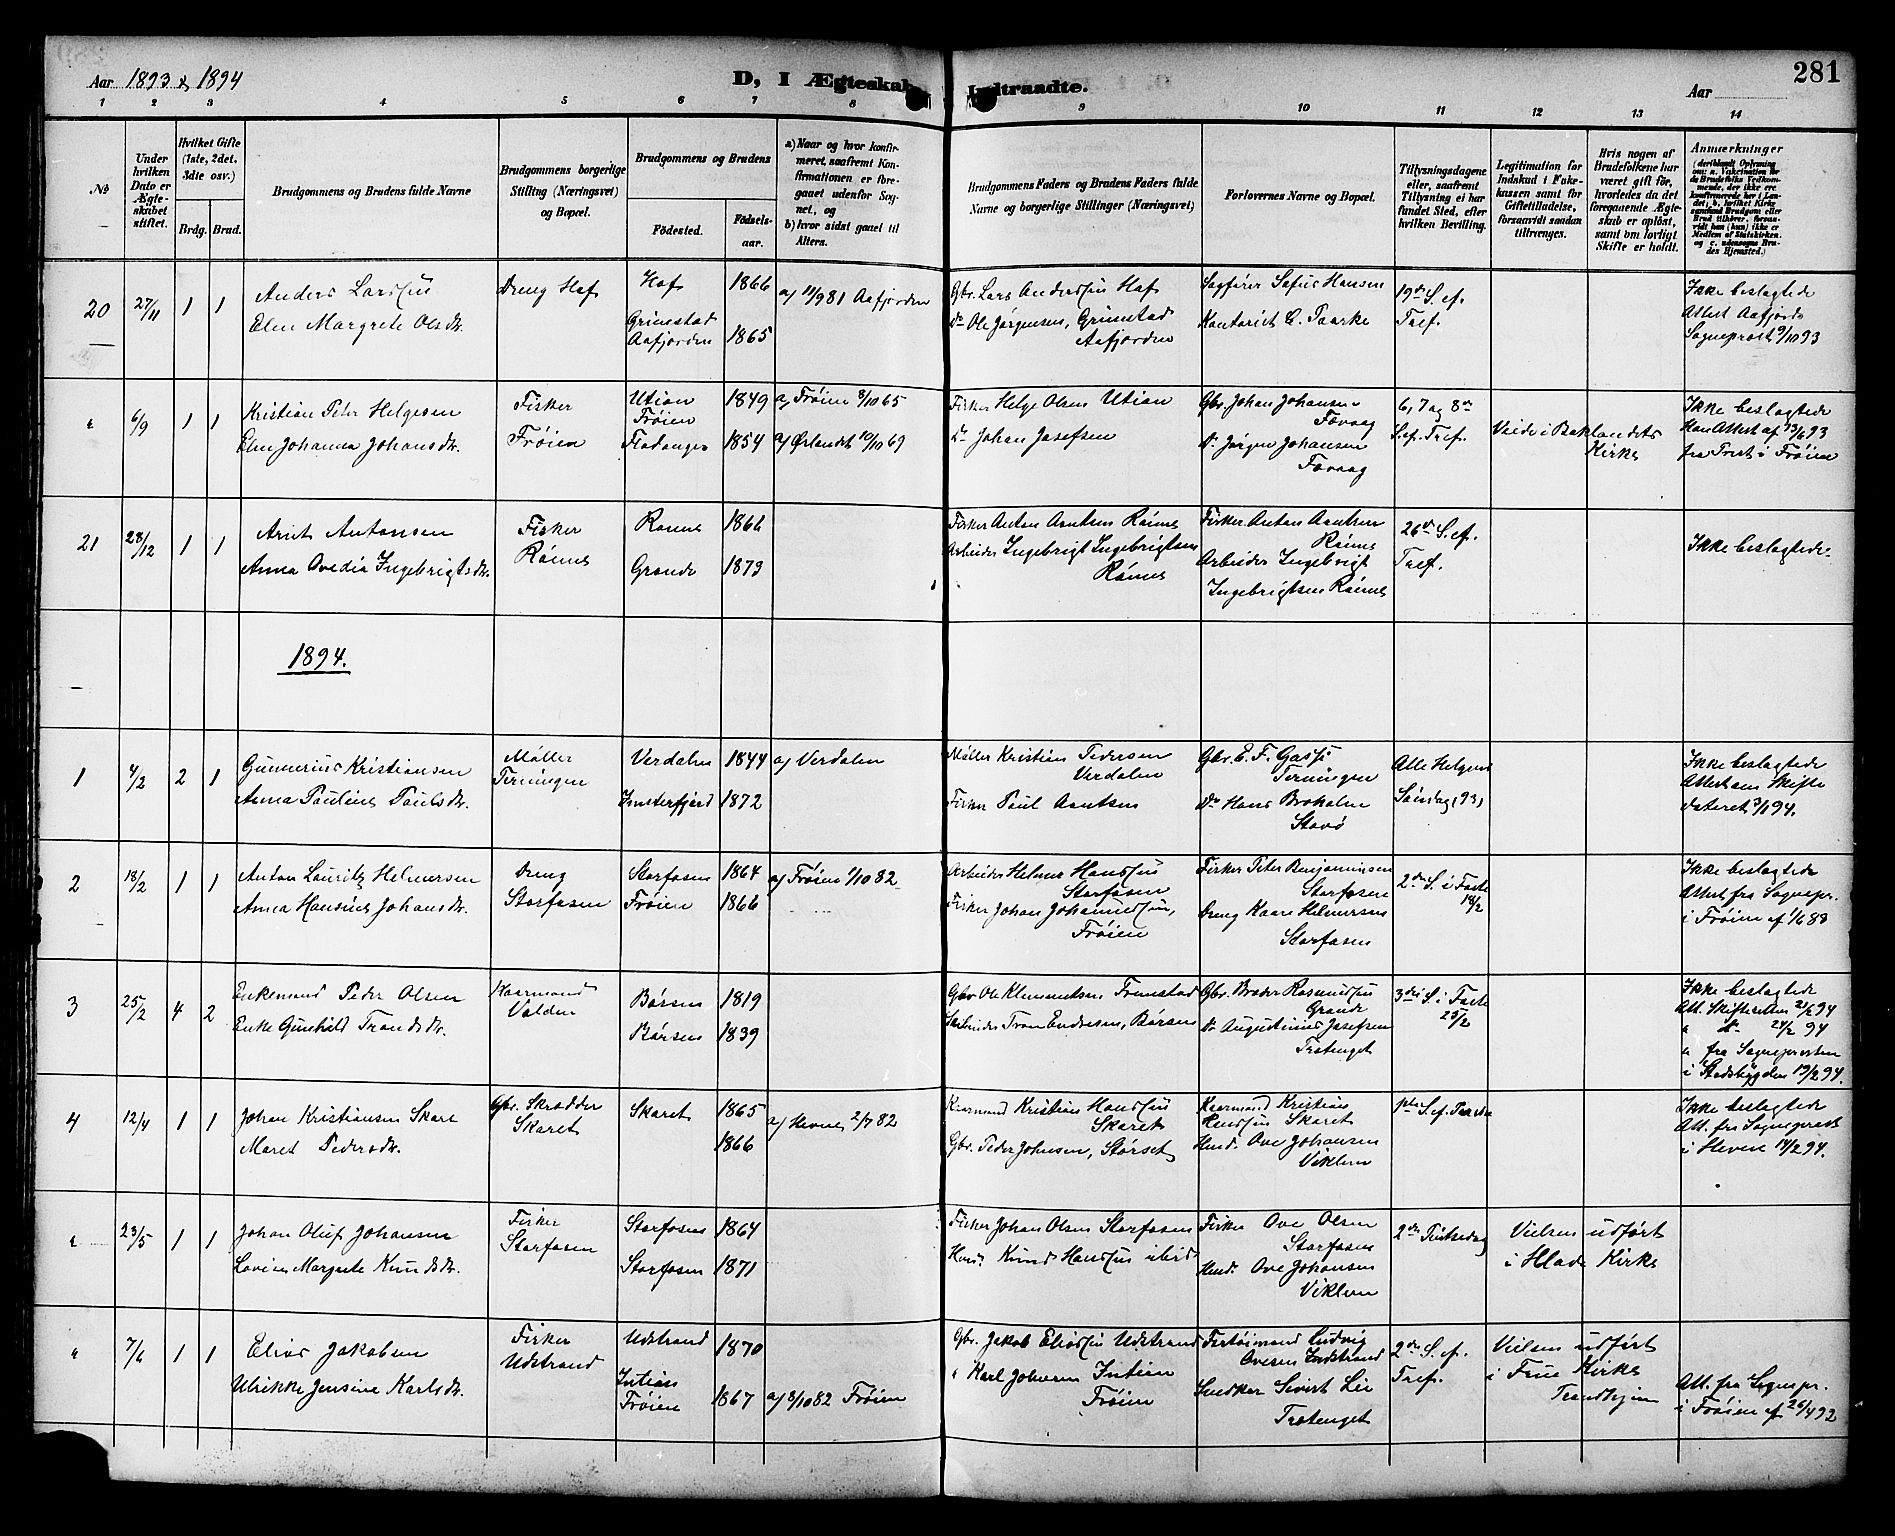 281
Aar 1893 & 1894
D, I Ægteskab Indtraadte.
Aar
1 2 3 4 5 6 7 8 9 10 11 12 13 14
No
Under hvilken Dato er Ægteskabet stiftet.
Hvilket Gifte (1ste, 2det, 3die osv.)
Brdg. Brud.
Brudgommens og Brudens fulde Navne
Brudgommens borgerlige Stilling (Næringsvei) og Bopæl.
Brudgommens og Brudens
Födested.
Födselsaar.
a) Naar og hvor konfirmeret, saafremt Konfirmationen er foregaaet udenfor Sognet, og
b) hvor sidst gaaet til Alters.
Brudgommens Faders og Brudens Faders fulde Navne og borgerlige Stillinger (Næringsvei)
Forlovernes Navne og Bopæl.
Tillysningsdagene eller, saafremt Tillysning ei har fundet Sted, efter hvilken Bevilling.
Legitimation for Indskud i Fakekassen samt for Giftetilladelse, forsaavidt saadan tiltrænges.
Hvis nogen af Brudefolkene har været gift för, hvorledes da det foregaaende Ægteskab er oplöst, samt om lovligt Skifte er holdt.
Anmærkninger
20 27/11 1 1
Anders Larssen
Elen Margrete Olsdr.
Dreng Hof
Hof 1866
Grimstad
Aafjorden 1865
a) 11/9 81 Aafjorden
Gbr. Lars Anderssen Hof
Do Ole Jørgensen, Grimstad
Aafjorden
Sagfører Sofus Hansen
Kontorist C. Paarke
19de S. ef.
Tref.
Ikke beslagtede
Attest Aafjords
Sogneprest 9/10 93
" 6/9 1 1
Kristian Peter Helgesen
Elen Johanna Johansdr.
Fisker
Frøien
Utian 1849
Frøien
Fladanger 1854
a) Frøien 8/10 65
a) Ørlandet 10/10 69
Fisker Helge Olsen Utian
Do Johan Josefsen
Gbr. Johan Johansen
Do Jørgen Johansen
6, 7 og 8de
S. ef. Tref.
Viede i Baklandets
Kirke
Ikke beslagtede
Han Attest af 13/6 93
fra Prest i Frøien
21 28/12 1 1
Arnt Antonsen
Anna Ovedia Ingebrigtsdr.
Fisker
Rønne
Rønne 1866
Grande 1873
Fisker Anton Arntsen Rønne
Arbeider Ingebrigt Ingebrigtsen
Rønne
Fisker Anton Arntsen
Rønne
Arbeider Ingebrigt
Ingebrigtsen Rønne
26de S. ef.
Tref.
Ikke beslagtede
1894.
1 4/2 2 1
Gunnerius Kristiansen
Anna Pauline Paulsdr.
Møller
Terningen
Verdalen 1844
1872
a) Verdalen
Møller Kristian Pedersen
Verdalen
Fisker Paul Arntsen
Gbr. E. F.
Terningen
Do Hans
Alle Helgens
Søndag (93)
Ikke beslagtede
Attest om Skifte
dateret 3/1 94.
2 18/2 1 1
Anton Lauritz Helmersen
Anna Hansine Johansdr.
Dreng
Storfosen
Storfosen 1864
Frøien 1866
a) Frøien 1/10 82
Arbeider Helmer Hanssen
Storfosen
Fisker Johan Johannessen,
Frøien
Fisker Peter Benjaminsen
Storfosen
Dreng Kaare Helmersen
Storfosen
2den S. i Faste
18/2
Ikke beslagtede
Attest fra Sognepr.
i Frøien af 1/6 88
3 25/2 4 2
Enkemand Peder Olsen
Enke Gunhild Trondsdr.
Kaarmand
Valden
Børsen 1819
Børsen 1839
Gbr. Ole Klemmetsen
Tron Endresen, Børsen
Gbr. Broder Rasmussen
Grande
Do Augustinus Josefsen
Tratenget
3die S. i Faste
25/2
Ikke beslagtede
Att. Skifteretten 21/2 94
" do 24/2 94
" fra Sognepresten
i Stadsbygden 19/2 94.
4 12/4 1 1
Johan Kristiansen Skaret
Maret Pedersdr.
Gbr. Skrædder
Skaret
Skaret 1865
1866
a) Hevne 2/7 82
Kaarmand Kristian Hanssen
Skaret
Gbr. Peder Johnsen, Størset
Kaarmand Kristian
Hanssen Skaret
Hmd. Ove Johansen
Viklem
1ste S. ef. Paaske
Ikke beslagtede
Att. fra Sogneprest
i Hevne 14/2 94.
" 23/5 1 1
Johan Oluf Johansen
Lovise Margrete Knudsdr.
Fisker
Storfosen
Storfosen 1864
Storfosen 1871
Fisker Johan Olsen Storfosen
Hmd. Knud Hanssen ibid
Fisker Ove Olsen
Storfosen
Hmd. Ove Johansen
Viklem
2den Pintsedag
Vielsen udført
i Hlade Kirke
" 7/6 1 1
Elias Jakobsen
Ulrikke Jensine Karlsdr.
Fisker
Udstrand
Udstrand 1870
Frøien 1867
a) 8/10 82 Frøien
Gbr. Jakob Eliassen Udstrand
" Karl Johnsen
Frøien
Ludvig
Ovesen
Snedker Sivert Lie
Tratenget
2den S. ef.
Tref.
Vielsen udført
i Frue Kirke
Trondhjem
Att. fra Sognepr.
i Frøien af 26/4 92